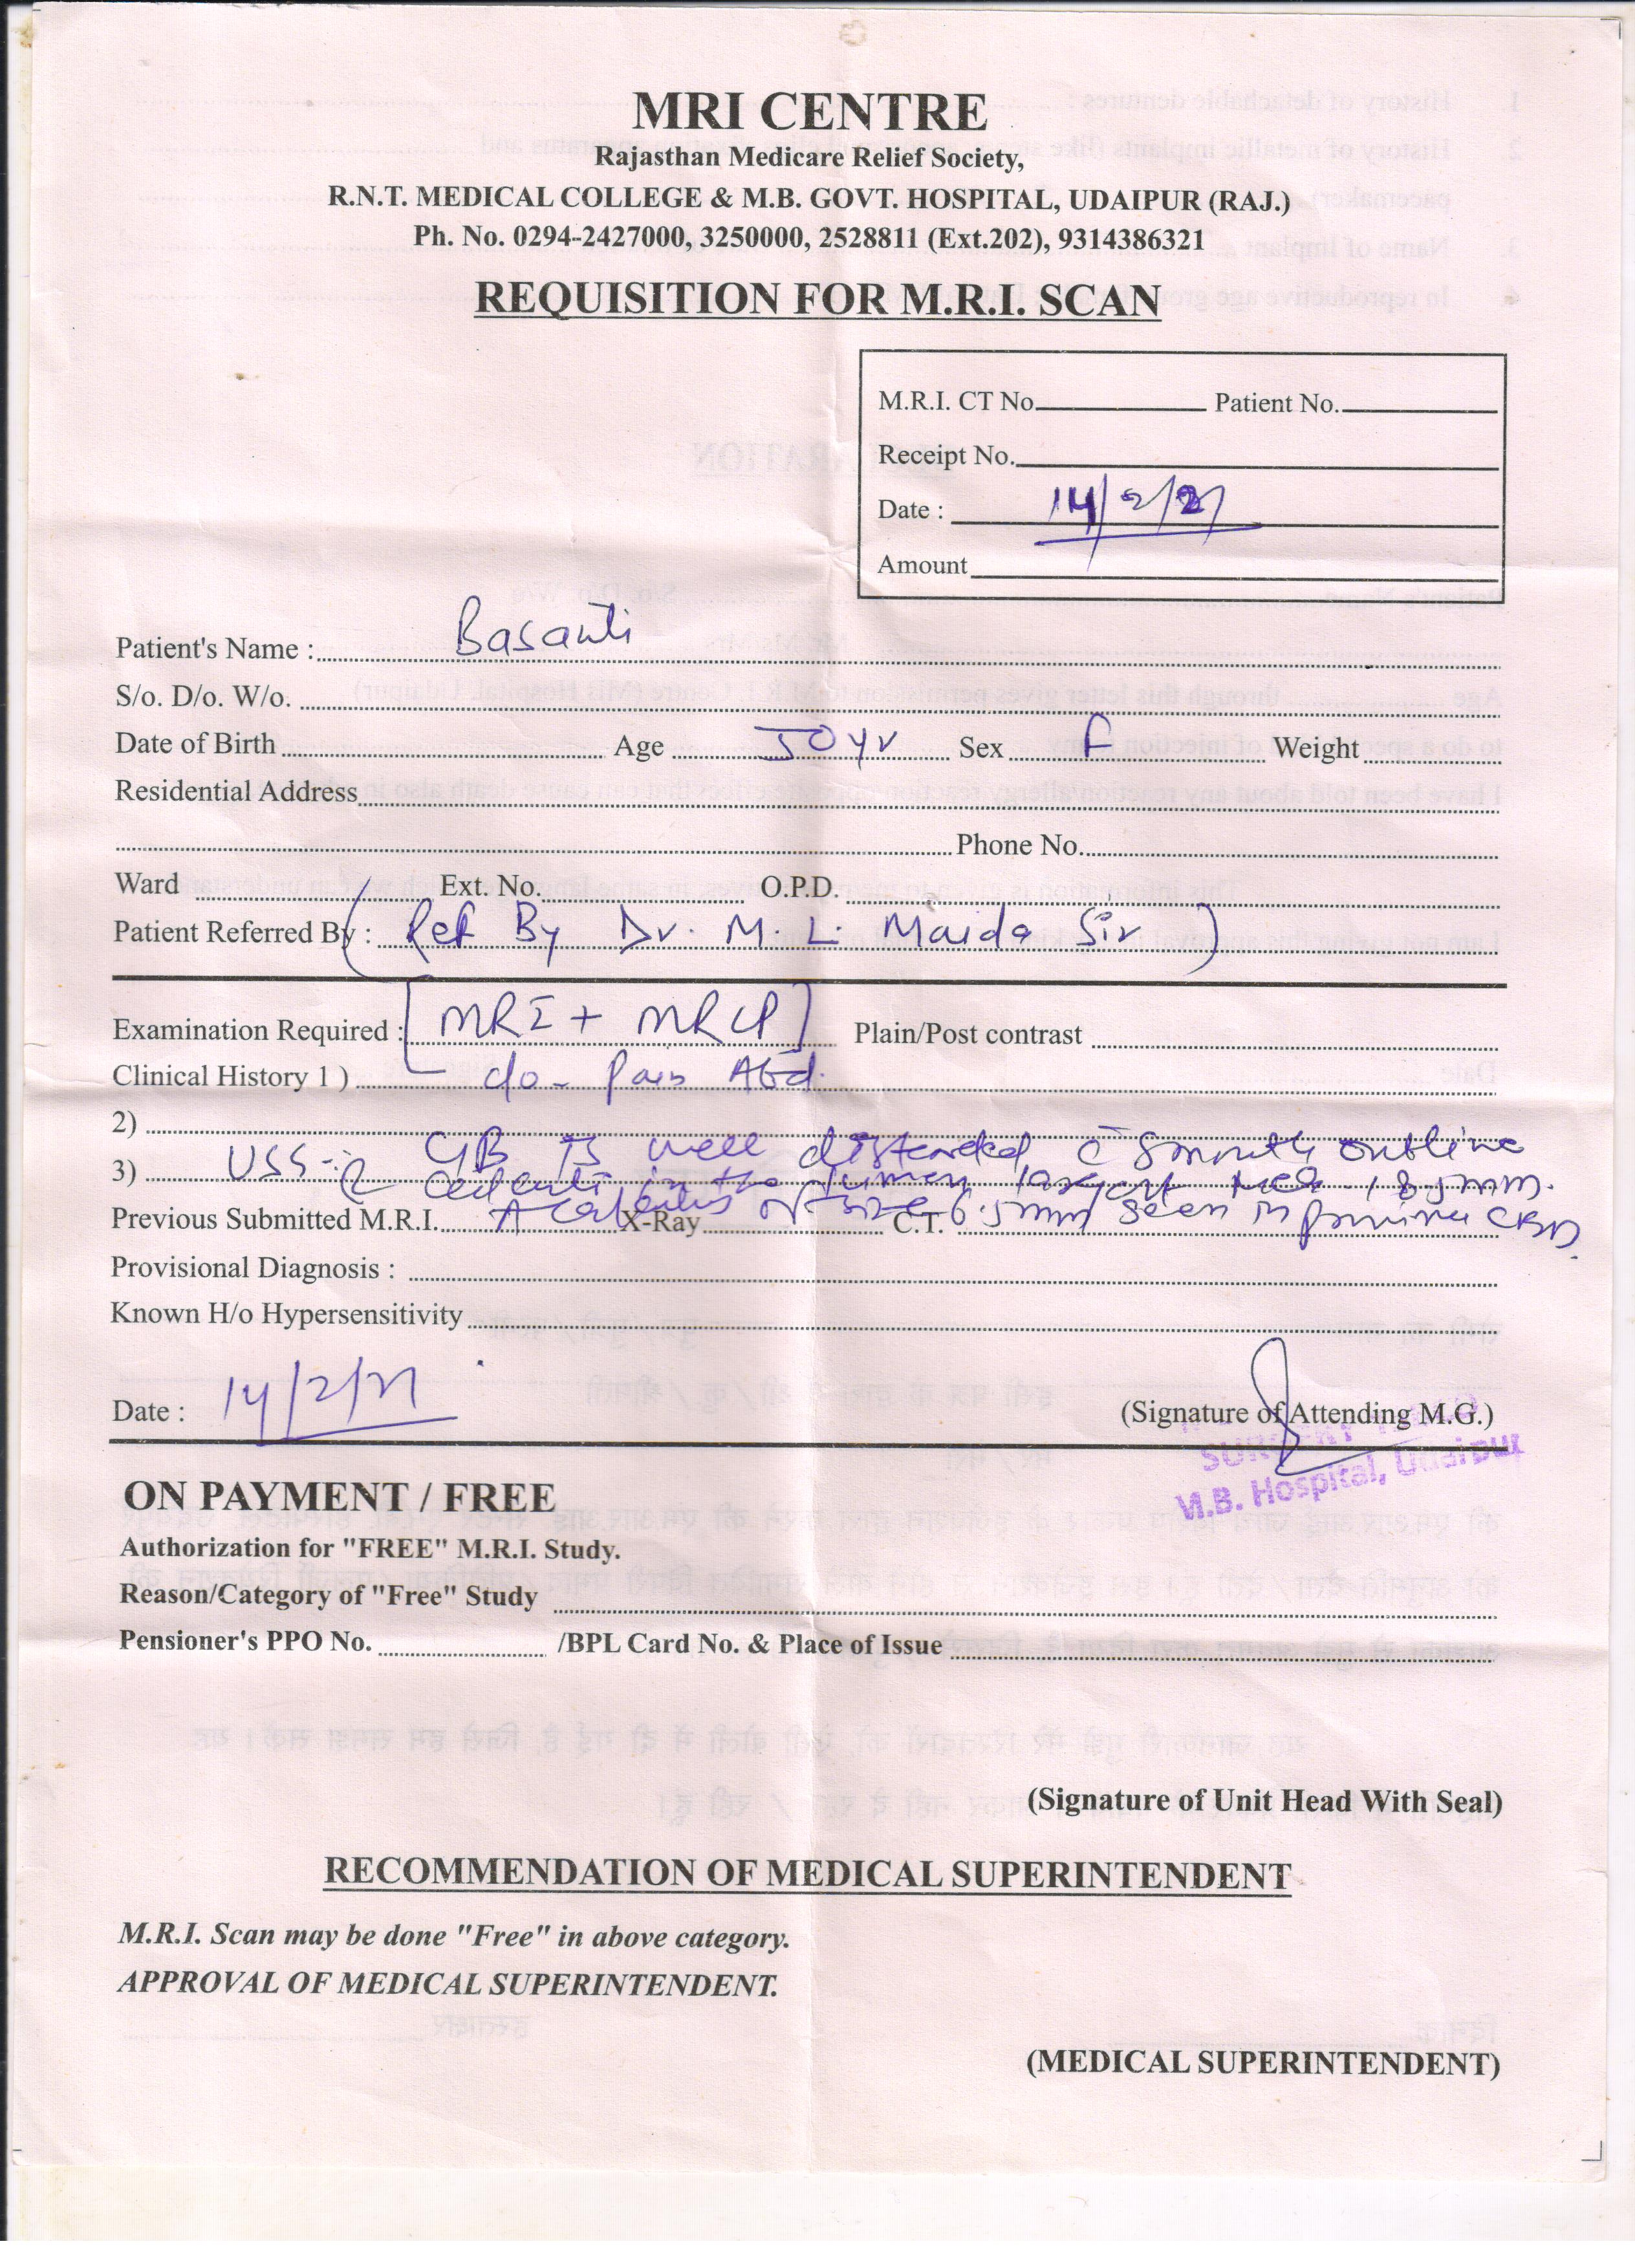 MRI CENTRE
Rajasthan Medicare Relief Society,
R.N.T. MEDICAL COLLEGE & M.B. GOVT. HOSPITAL, UDAIPUR (RAJ.)
Ph. No. 0294-2427000, 3250000, 2528811 (Ext.202), 9314386321
REQUISITION FOR M.R.I. SCAN
M.R.I. CT No. Patient No.
Receipt No.
Date : 14/2/21
Amount
Patient's Name : Basanti
S/o. D/o. W/o.
Date of Birth Age 50 yr Sex F Weight
Residential Address
Phone No.
Ward Ext. No. O.P.D.
Patient Referred By : (Ref By Dr. M. L. Maida Sir)
Examination Required : [MRI + MRCP] Plain/Post contrast
Clinical History 1 ) c/o - Pain Abd.
2)
USS - GB is well distended c̄ smooth outline
3) calculi in the lumen largest 18.5mm.
Previous Submitted M.R.I. X-Ray C.T.
A calculus of size 6.5mm seen in CBD.
Provisional Diagnosis :
Known H/o Hypersensitivity
Date : 14/2/21 (Signature of Attending M.G.)
SURGERY
M.B. Hospital, Udaipur
ON PAYMENT / FREE
Authorization for "FREE" M.R.I. Study.
Reason/Category of "Free" Study
Pensioner's PPO No. /BPL Card No. & Place of Issue
(Signature of Unit Head With Seal)
RECOMMENDATION OF MEDICAL SUPERINTENDENT
M.R.I. Scan may be done "Free" in above category.
APPROVAL OF MEDICAL SUPERINTENDENT.
(MEDICAL SUPERINTENDENT)